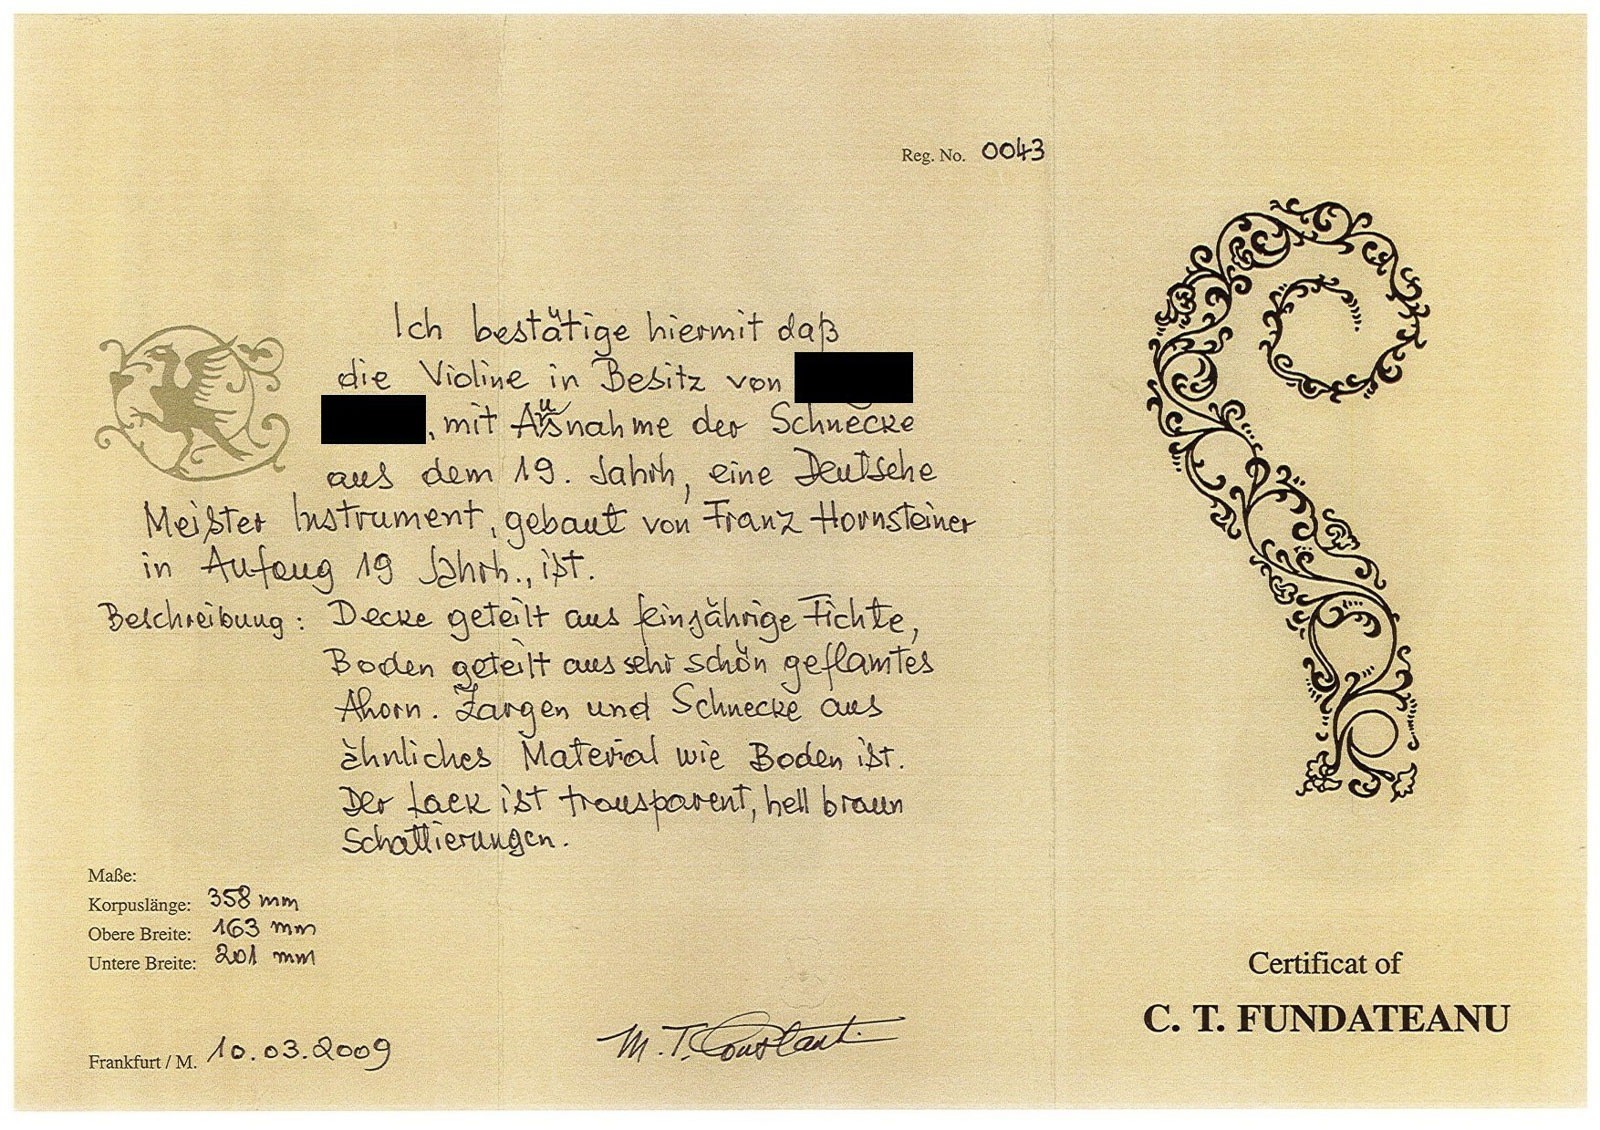 Reg. No. 0043
Ich bestätige hiermit daß
die Violine in Besitz von
, mit Ausnahme der Schnecke
aus dem 19. Jahrh, eine Deutsche
Meister Instrument, gebaut von Franz Hornsteiner
in Anfang 19 Jahrh., ist.
Beschreibung: Decke geteilt aus feinjährige Fichte,
Boden geteilt aus sehr schön geflamtes
Ahorn. Zargen und Schnecke aus
ähnliches Material wie Boden ist.
Der Lack ist transparent, hell braun
Schattierungen.
Maße:
Korpuslänge: 358 mm
Obere Breite: 163 mm
Untere Breite: 201 mm
Frankfurt / M. 10.03.2009
M. T. Constant
Certificat of
C. T. FUNDATEANU